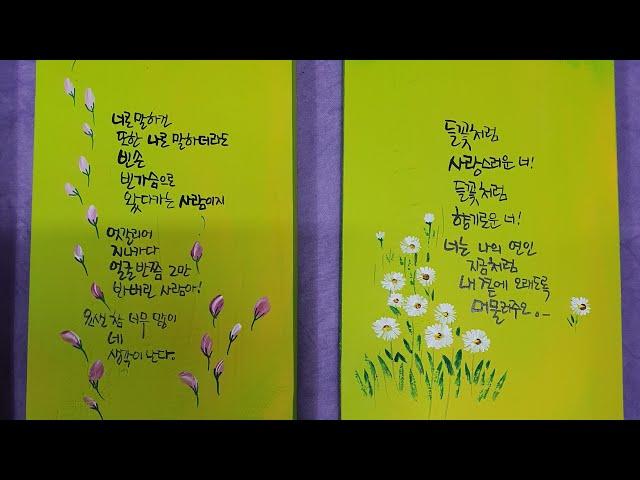 너로 말하건
또한 나로 말하더라도
빈손
빈가슴으로
왔다가는 사람이지
엇갈리어
지나가다
얼굴 반쯤 그만
봐버린 사람아!
요샌 참 너무 많이
네
생각이 난다.
들꽃처럼
사랑스러운 너!
들꽃처럼
향기로운 너!
너는 나의 연인
지금처럼
내 곁에 오래도록
머물러주오.